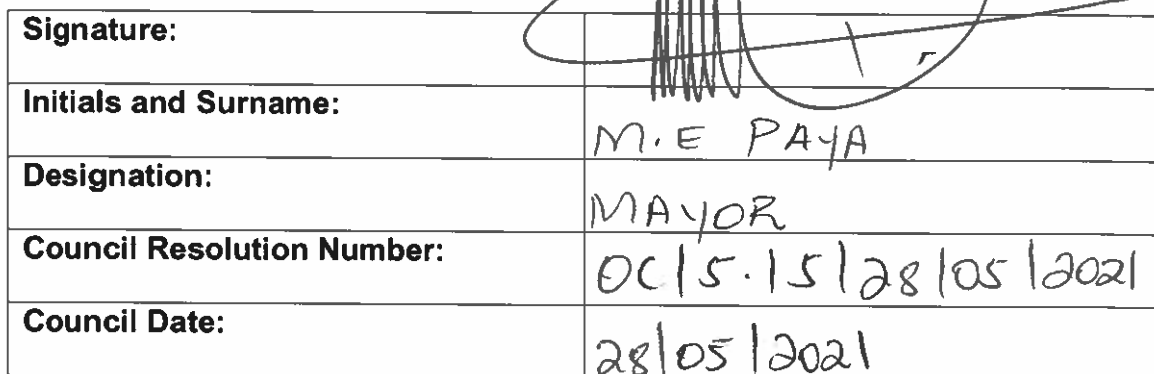 Signature:
Initials and Surname: M.E PAYA
Designation: MAYOR
Council Resolution Number: OC|5.15|28|05|2021
Council Date: 28|05|2021